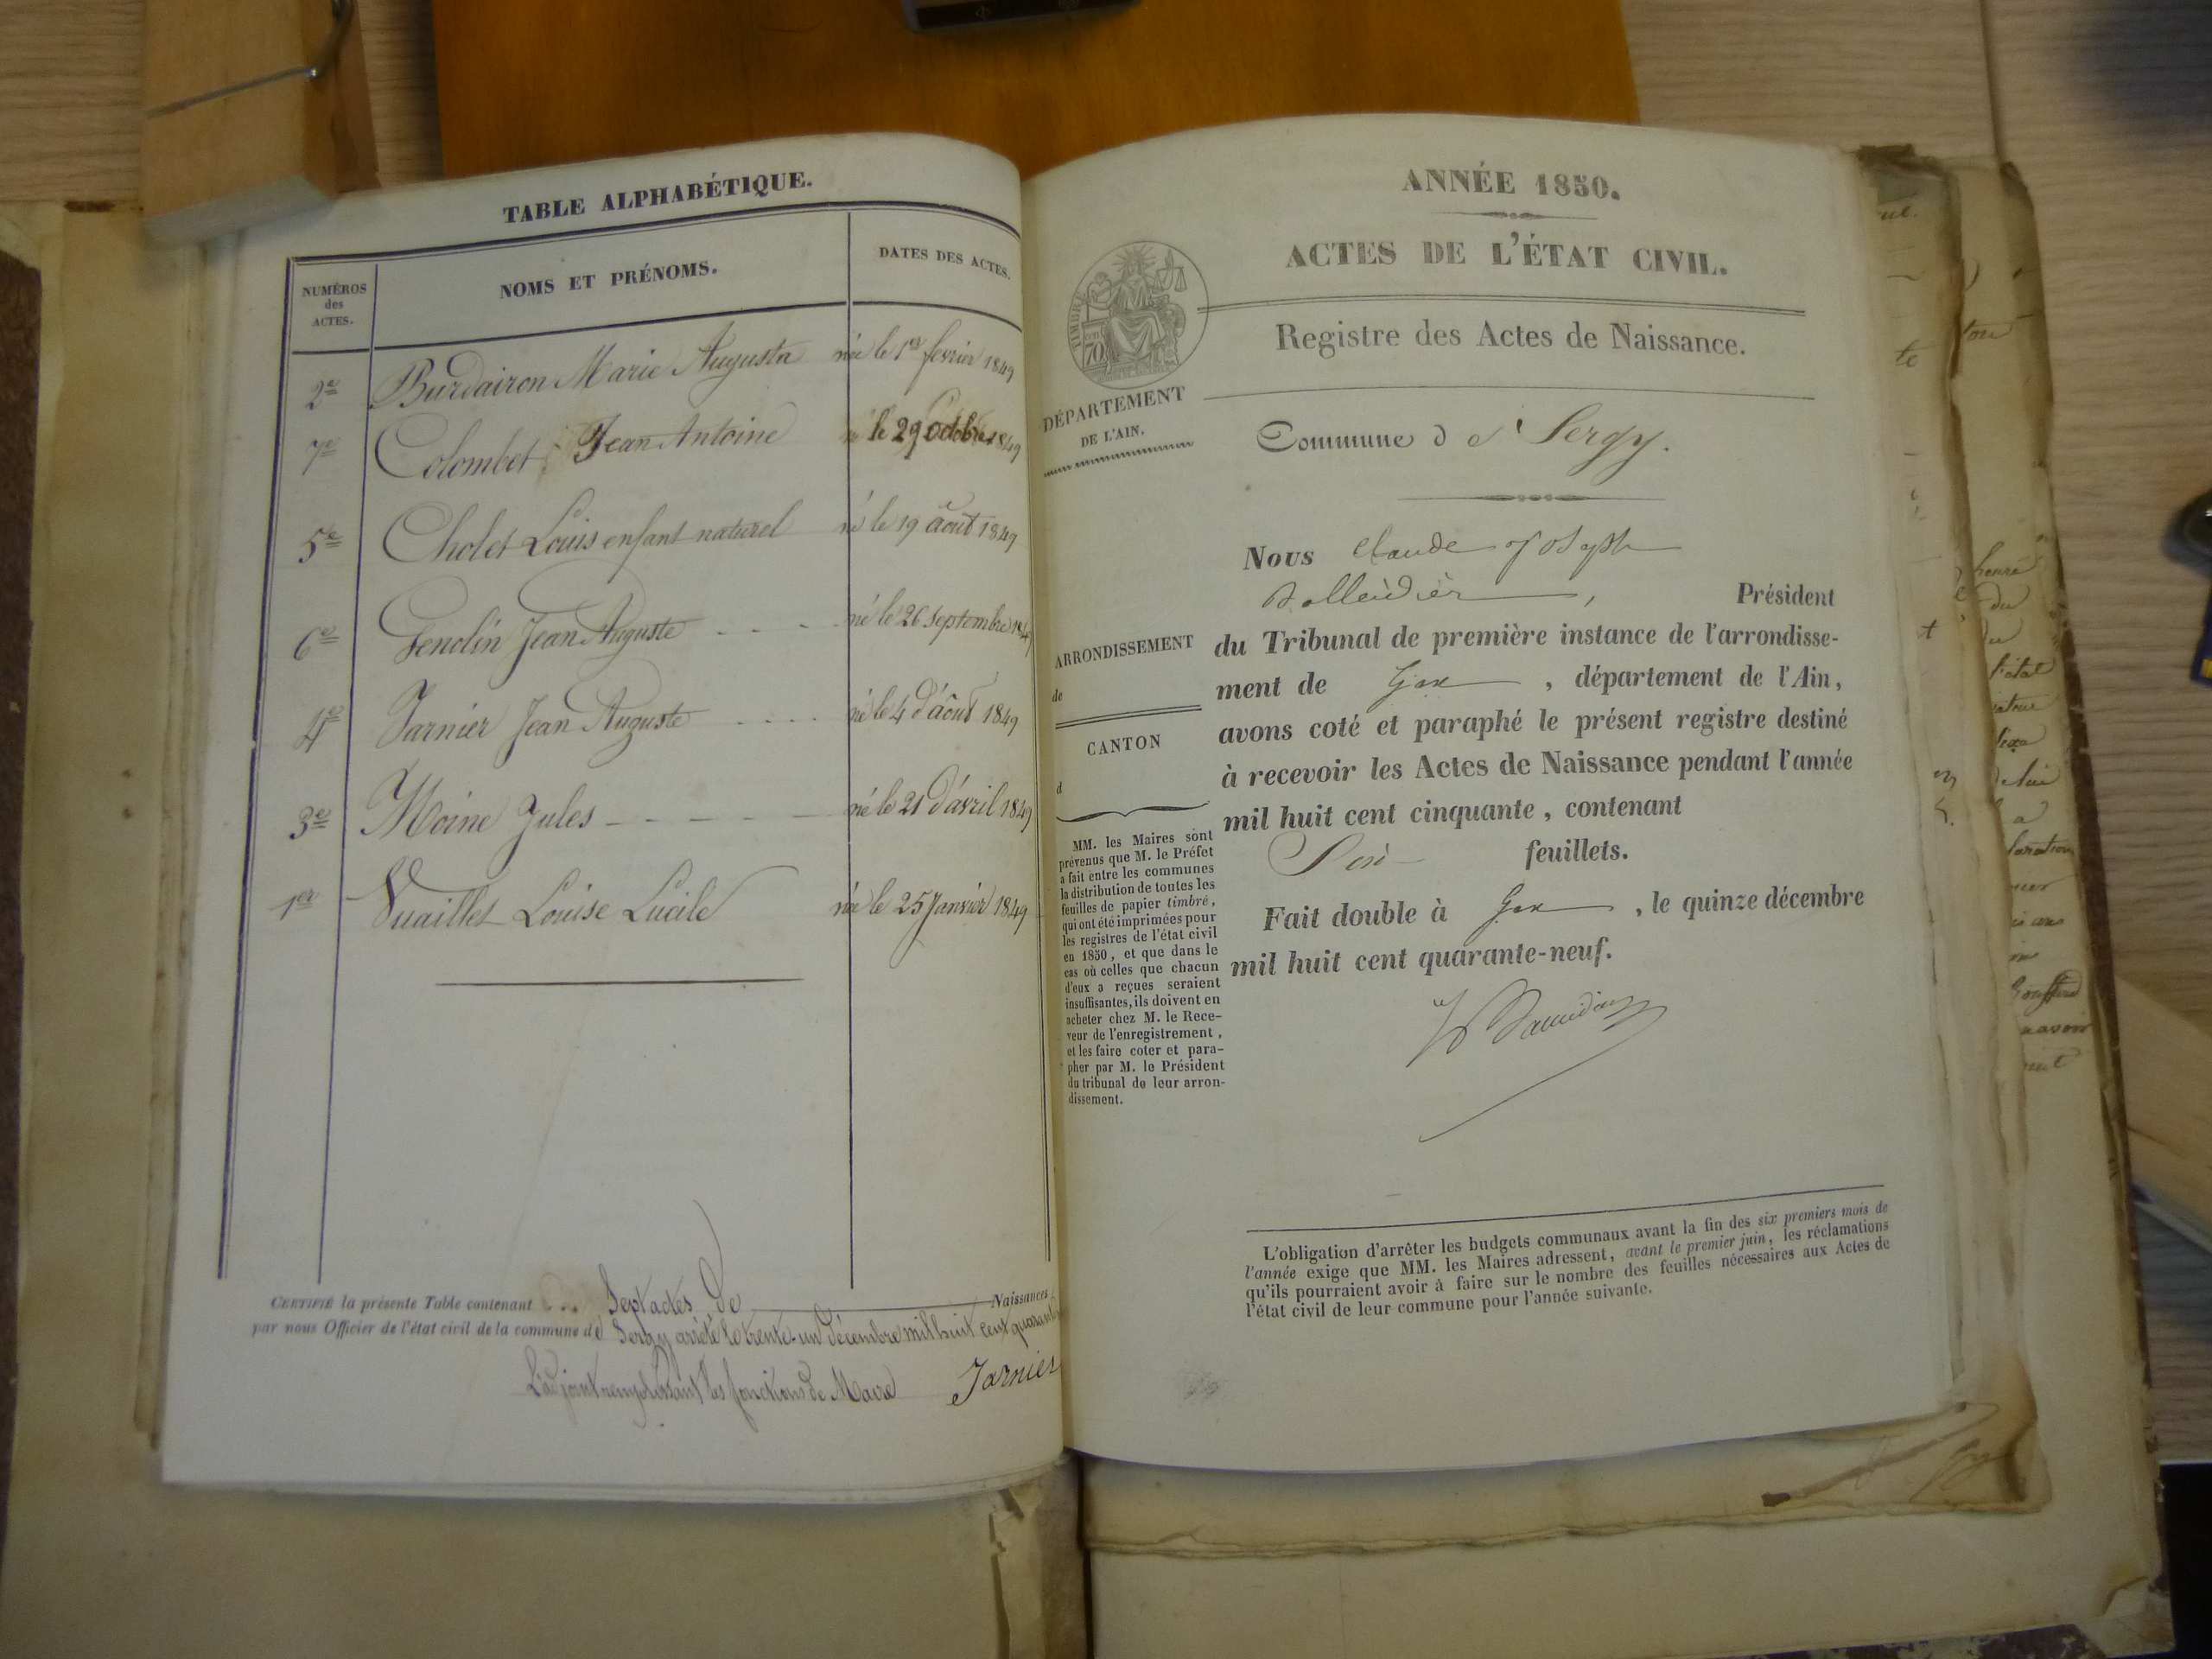 TABLE ALPHABÉTIQUE.
NUMÉROS
des
ACTES.
NOMS ET PRÉNOMS.
DATES DES ACTES.
2e Burdairon Marie Augusta née le 1er fevrier 1849
7e Colombet Jean Antoine né le 29 Octobre 1849
5e Cholet Louis enfant naturel né le 19 août 1849
6e Genolin Jean Auguste né le 26 septembre 1849
4e Jarnier Jean Auguste né le 4 d'août 1849
3e Moine Jules né le 21 d'avril 1849
1er Vuaillet Louise Lucile née le 25 Janvier 1849
CERTIFIÉ la présente Table contenant Sept actes De Naissances
par nous Officier de l'état civil de la commune de Sergy arrêté le trente-un Décembre mil huit cent quarante
L'adjoint remplissant les fonctions de Maire Jarnier
ANNÉE 1850.
ACTES DE L'ÉTAT CIVIL.
TIMBRE
70
Registre des Actes de Naissance.
DÉPARTEMENT
DE L'AIN.
Commune de Sergy.
Nous Claude Joseph
, Président
du Tribunal de première instance de l'arrondisse-
ment de Gex , département de l'Ain,
avons coté et paraphé le présent registre destiné
à recevoir les Actes de Naissance pendant l'année
mil huit cent cinquante, contenant
feuillets.
Fait double à Gex , le quinze décembre
mil huit cent quarante-neuf.
ARRONDISSEMENT
de
CANTON
d
MM. les Maires sont
prévenus que M. le Préfet
a fait entre les communes
la distribution de toutes les
feuilles de papier timbré,
qui ont été imprimées pour
les registres de l'état civil
en 1850, et que dans le
cas où celles que chacun
d'eux a reçues seraient
insuffisantes, ils doivent en
acheter chez M. le Rece-
veur de l'enregistrement,
et les faire coter et para-
pher par M. le Président
du tribunal de leur arron-
dissement.
L'obligation d'arrêter les budgets communaux avant la fin des six premiers mois de
l'année exige que MM. les Maires adressent, avant le premier juin, les réclamations
qu'ils pourraient avoir à faire sur le nombre des feuilles nécessaires aux Actes de
l'état civil de leur commune pour l'année suivante.